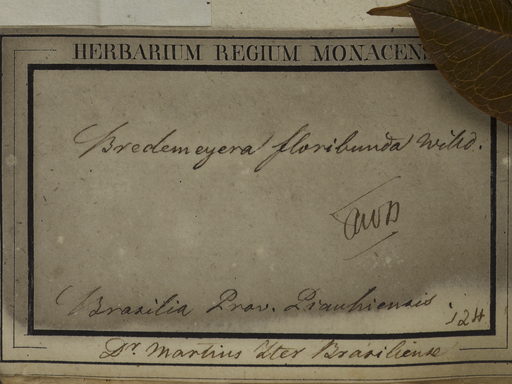 HERBARIUM REGIUM MONACENS
Bredemeyera floribunda Willd.
AWB
Brasilia Prov. Piauhiensis
124
Dr. Martius Iter Brasiliense